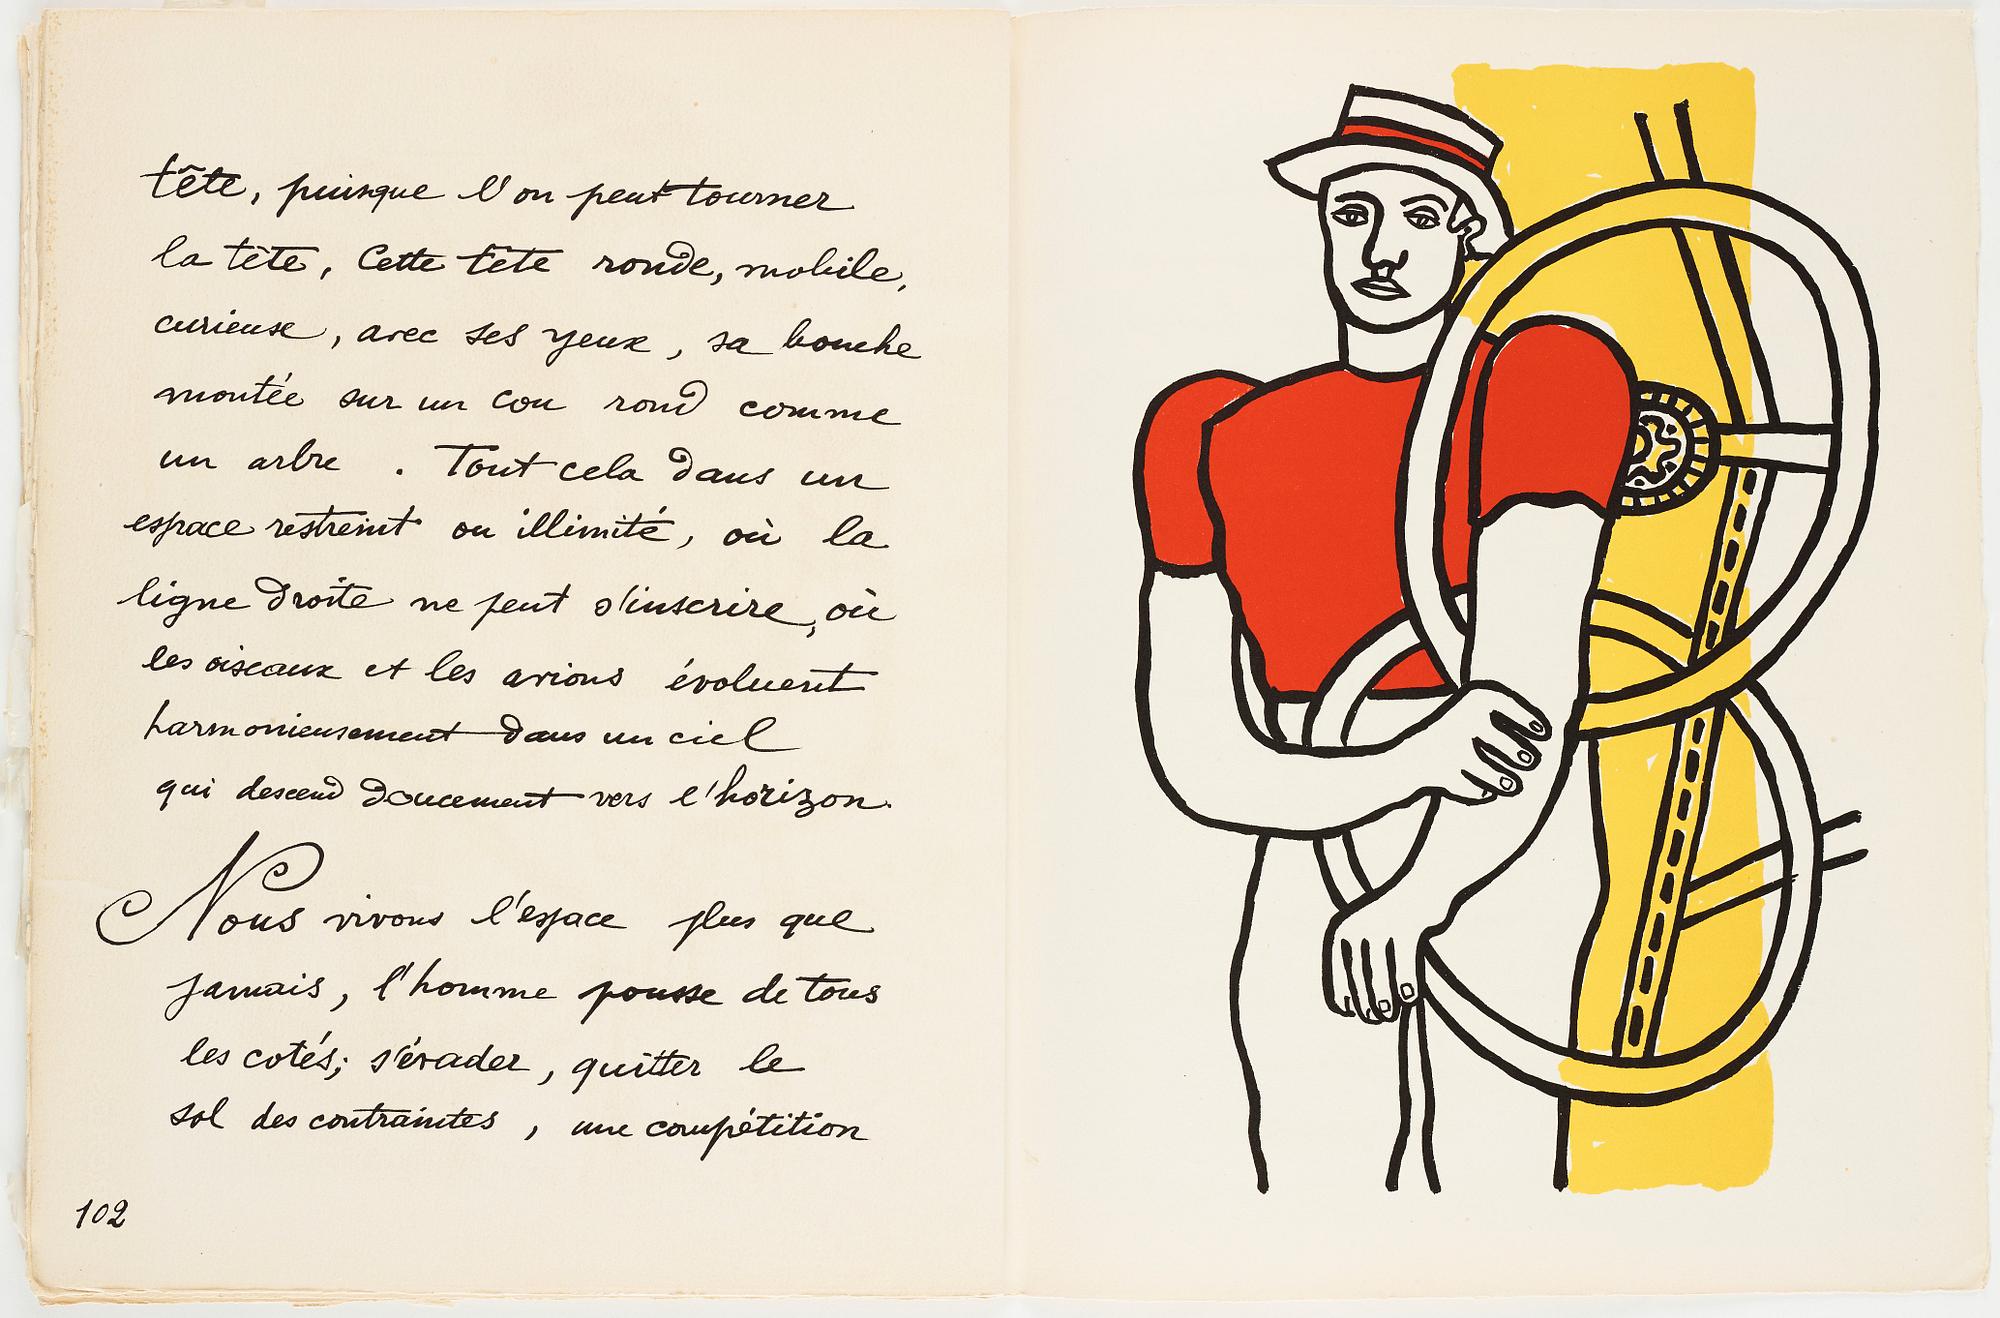 tête, puisque l'on peut tourner
la tête, Cette tête ronde, mobile,
curieuse, avec ses yeux, sa bouche
montée sur un cou rond comme
un arbre . Tout cela dans un
espace restreint ou illimité, où la
ligne droite ne peut s'inscrire, où
les oiseaux et les avions évoluent
harmonieusement dans un ciel
qui descend doucement vers l'horizon.
Nous vivons l'espace plus que
jamais, l'homme pousse de tous
les cotés; s'évader, quitter le
sol des contraintes, une compétition
102